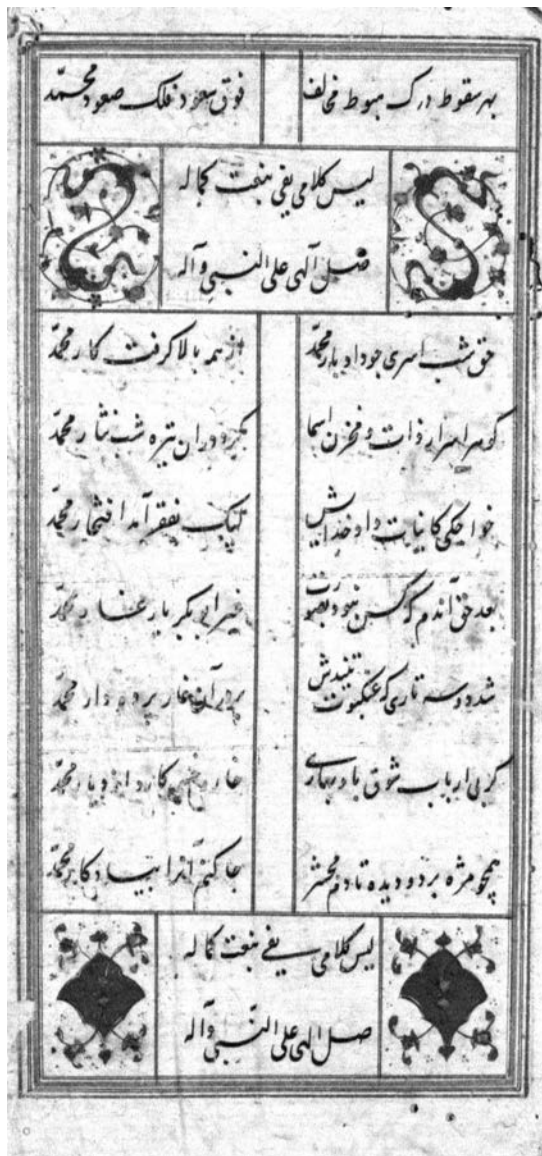 بهر سقوط درک هبوط مخالف
فوق سعود فلک صعود محمّد
لیس کلامی یفی بنعت کماله
صل الهی علی النبی وآله
حق شب اسری چو داد بار محمّد
از همه بالا گرفت کار محمّد
گوهر اسرار ذات و مخزن اسما
کرد در آن تیره شب نثار محمّد
خواجگی کاینات داد خدایش
لیک بفقر آمد افتخار محمّد
بعد حق آندم که کس نبود بصورت
غیر ابی بکر یار غار محمّد
شد دو سه تاری که عنکبوت تنیدش
بر در آن غار پرده دار محمّد
گر بی ارباب شوق باد بهاری
خار آرد از دیار محمّد
همچو مژه بر دو دیده تا دم محشر
جا کنم آنرا بیادگار محمّد
لیس کلامی یفی بنعت کماله
صل الهی علی النبی وآله